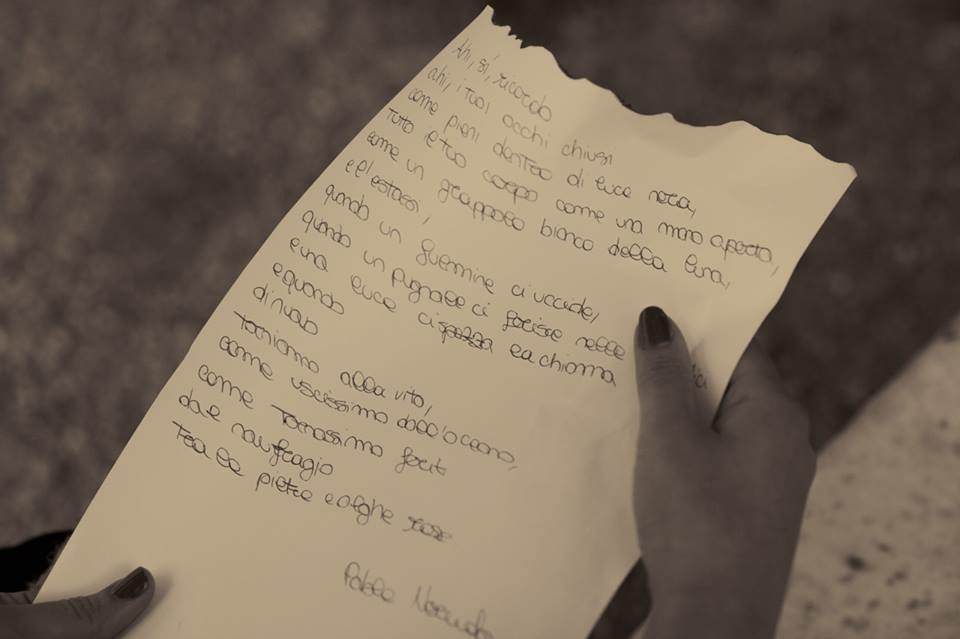 Ahi, sì, ricordo
ahi, i tuoi occhi chiusi
come pieni dentro di luce nera,
tutto il tuo corpo come una mano aperta,
come un grappolo bianco della luna,
e l'estasi,
quando un fulmine ci uccide,
quando un pugnale ci ferisce nelle
e una luce ci spezza la chioma
e quando
di nuovo
torniamo alla vita,
come uscissimo dall'oceano,
come tornassimo feriti
dal naufragio
tra le pietre e alghe rosse
Pablo Neruda